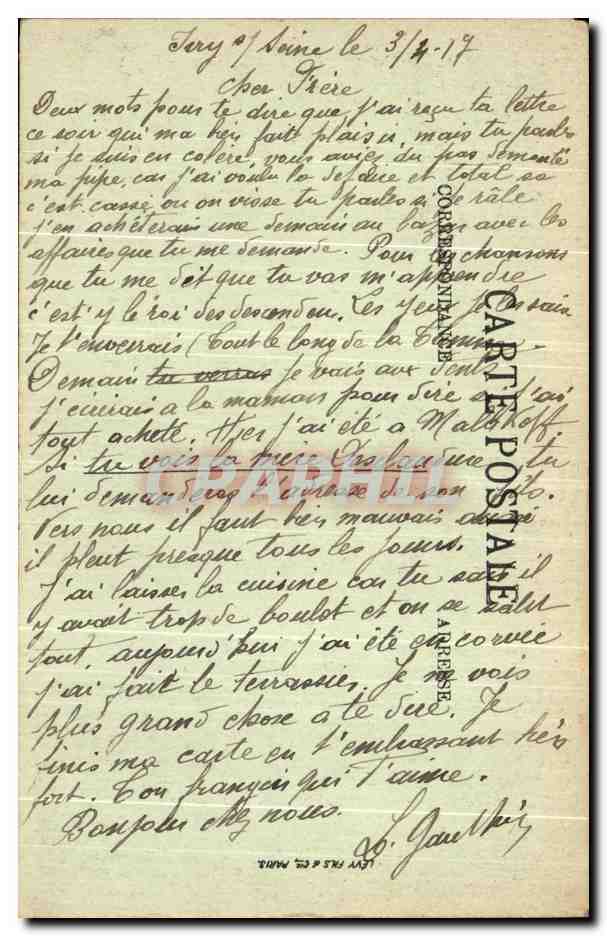 Ivry s/ Seine le 3/4-17
cher Frère
Deux mots pour te dire que j'ai reçu ta lettre
ce soir qui ma bien fait plaisir, mais tu parles
si je suis en colère, vous aviez du pas demonté
ma pipe, car j'ai voulu la defaire et total sa
c'est cassé, ou on visse tu parles si je râle
j'en achèterais une demain au bazar avec les
affaires que tu me demande. Pour les chansons
que tu me dit que tu vas m'apprendre
c'est y le roi des descendeu. Les yeux je les sais
Je t'enverrais (Tout le long de la
Demain tu verras Je vais aux dents
j'écrirais a la maman pour dire si j'ai
tout acheté. Hier j'ai été a Malakoff.
Si tu vois la mère tu
lui demanderas l'adresse de son
Vers nous il fait bien mauvais aussi
il pleut presque tous les jours.
J'ai laisser la cuisine car tu sais il
y avait trop de boulot et on se salit
tout, aujourd'hui j'ai été en corvée
j'ai fait le terrassier. Je ne vois
plus grand chose a te dire. Je
finis ma carte en t'embrassant bien
fort. Ton françois qui t'aime.
Bonjour chez nous.
CARTE POSTALE
CORRESPONDANCE
ADRESSE
LÉVY FILS & Cie, PARIS
CPARAMA